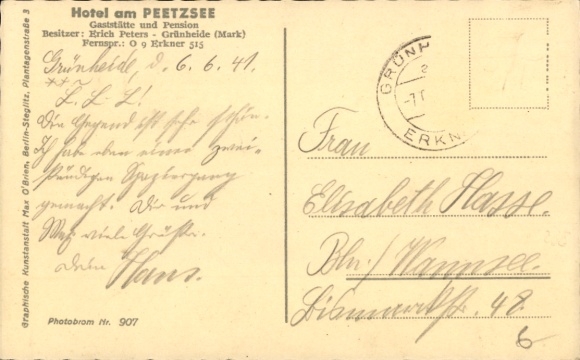 Hotel am PEETZSEE
Gaststätte und Pension
Besitzer: Erich Peters - Grünheide (Mark)
Fernspr.: O 9 Erkner 515
Grünheide, d. 6.6.41.
L. L. L!
Die Gegend ist sehr schön.
Ich habe eben einen zwei-
stündigen Spaziergang
gemacht. Dir und
viele Grüße.
Dein
Hans.
Photobrom Nr. 907
Graphische Kunstanstalt Max O'Brien, Berlin-Steglitz, Plantagenstraße 3
GRÜNH
ERKN
Frau
Elisabeth Hasse.
Bln./Wannsee.
Bismarckstr. 48.
6